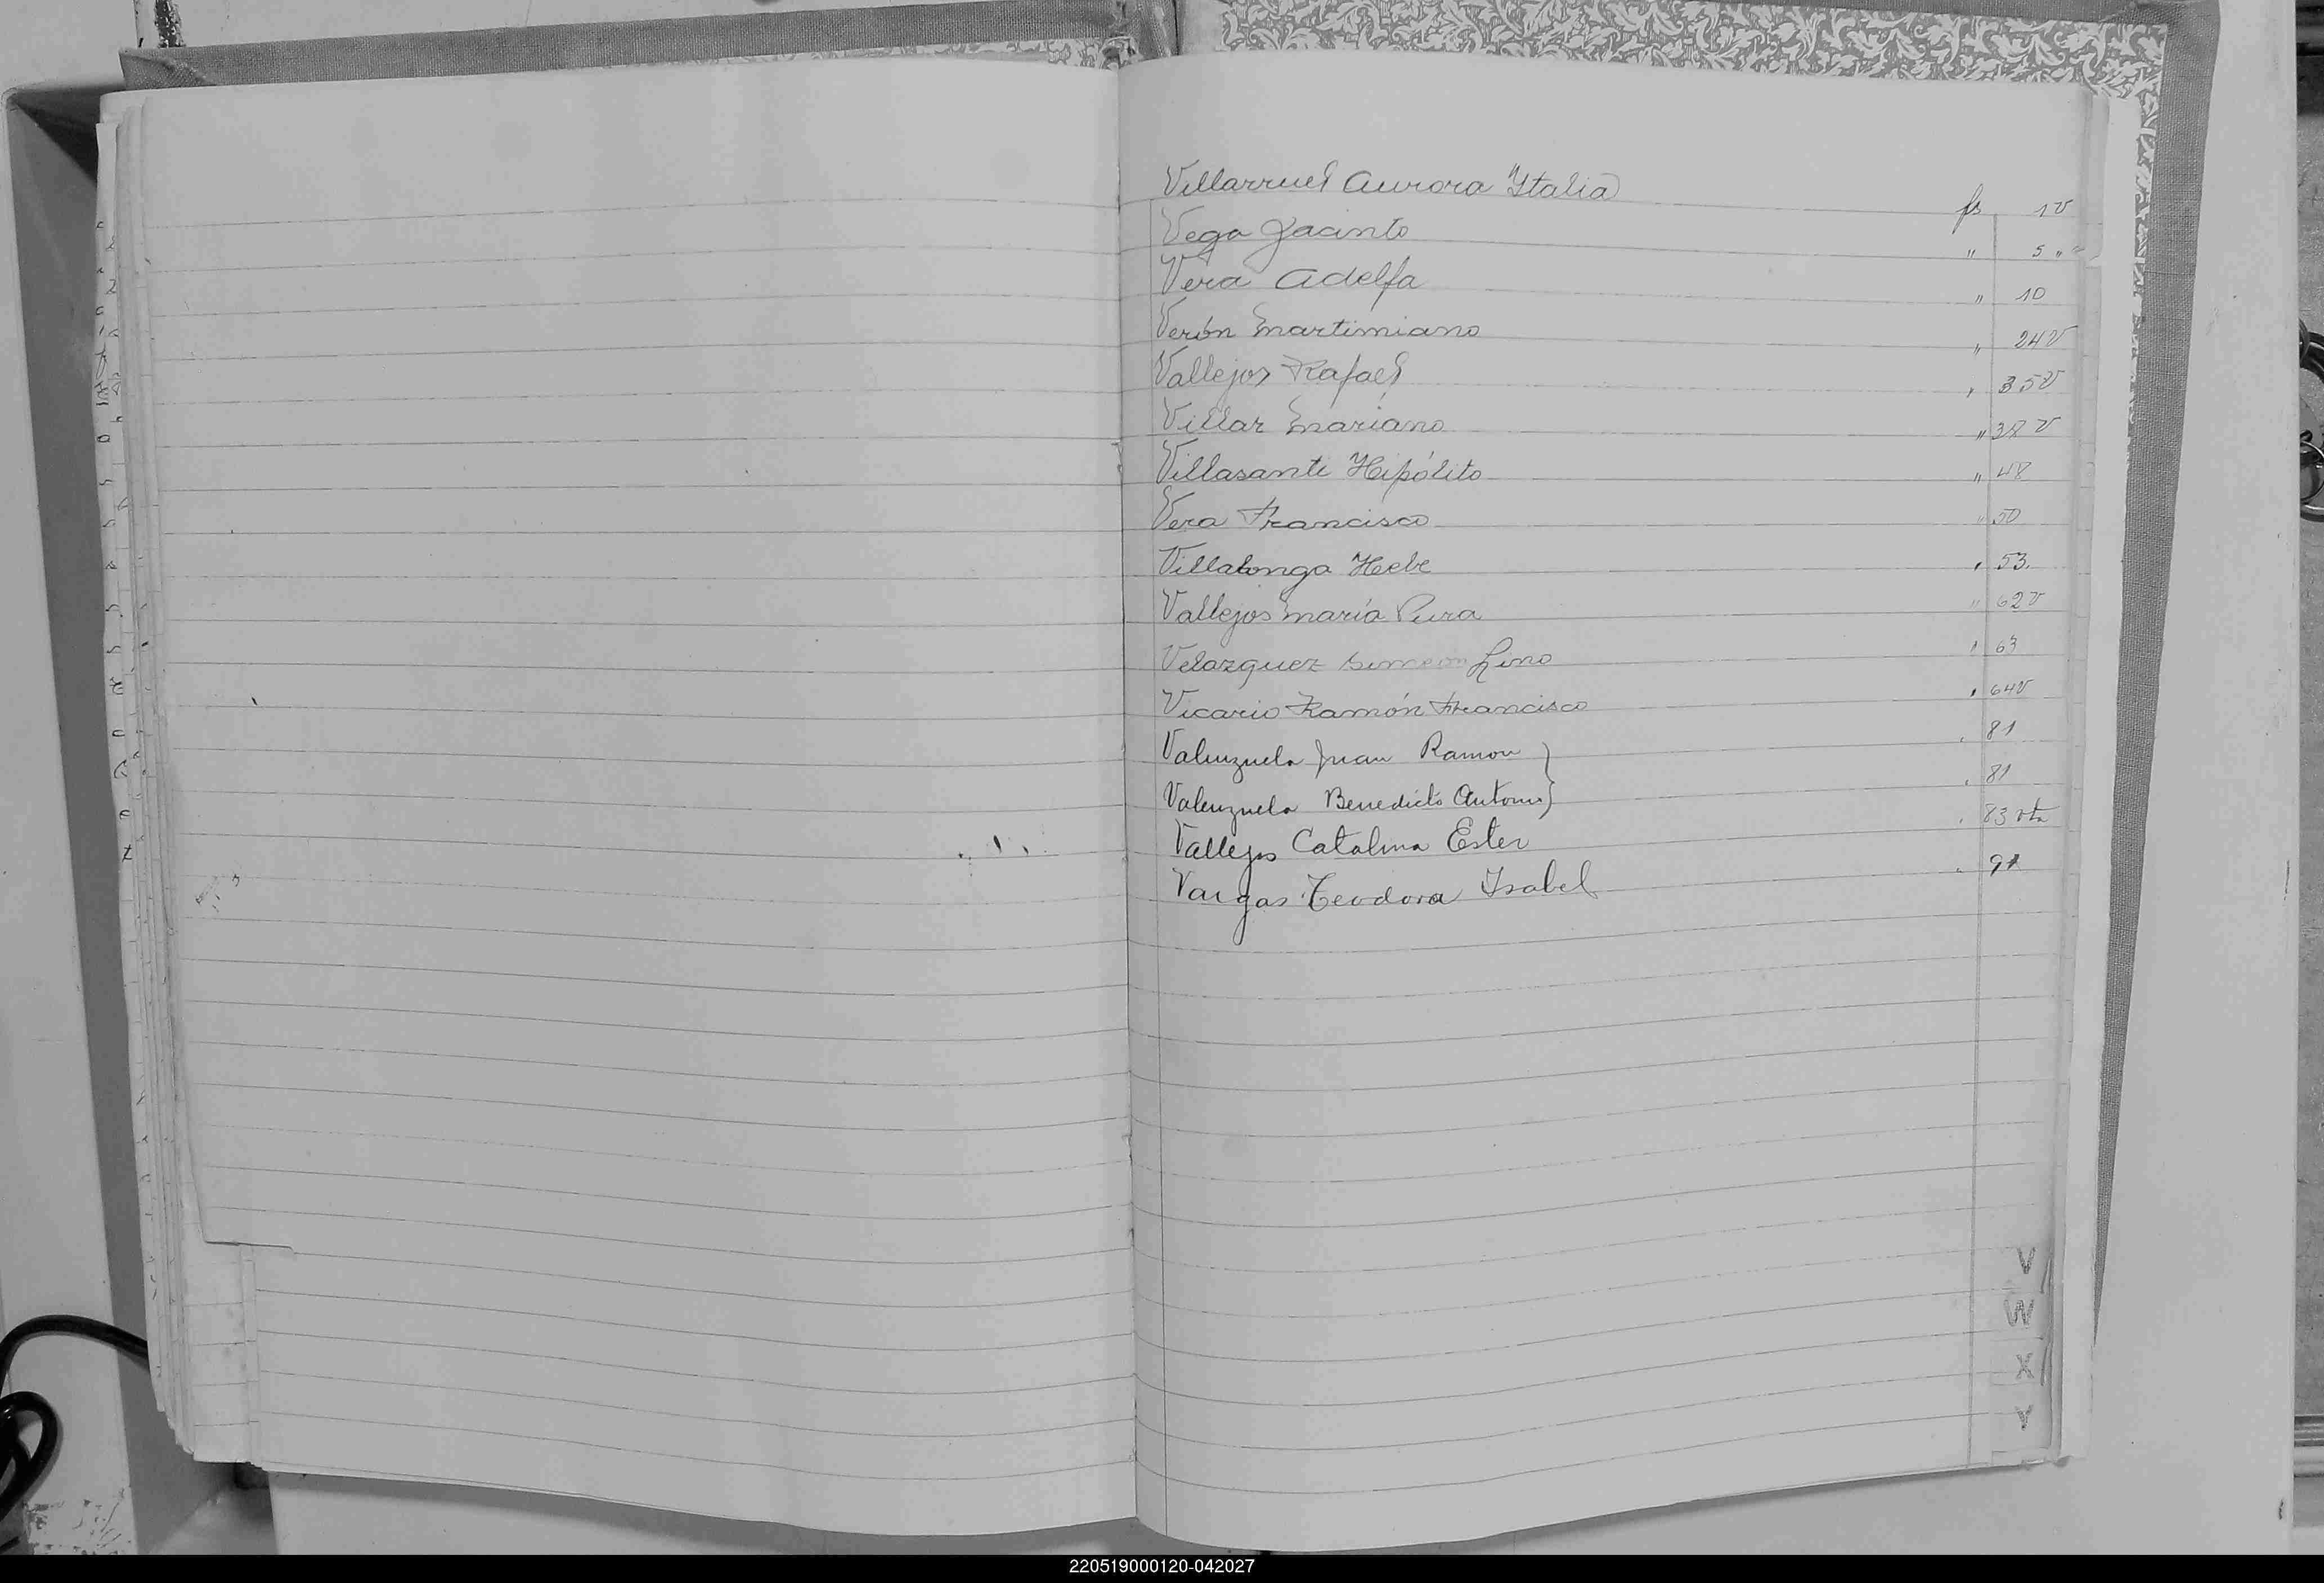 Villarruel Aurora Italia fs 1v
Vega Jacinto " 5 "
Vera Adelfa " 10
Verón Martimiano " 24v
Vallejos Rafael " 35v
Villar Mariano " 38 v
Villasanti Hipólito " 48
Vera Francisco " 50
Villalonga Hebe " 53.
Vallejos María Pura " 62v
Velazquez Simeon Lino " 63
Vicario Ramón Francisco " 64v
Valenzuela Juan Ramon } 81
Valenzuela Benedicto Antonio } 81
Vallejos Catalina Ester 83 vta
Vargas Teodora Isabel 91
V
W
X
Y
220519000120-042027